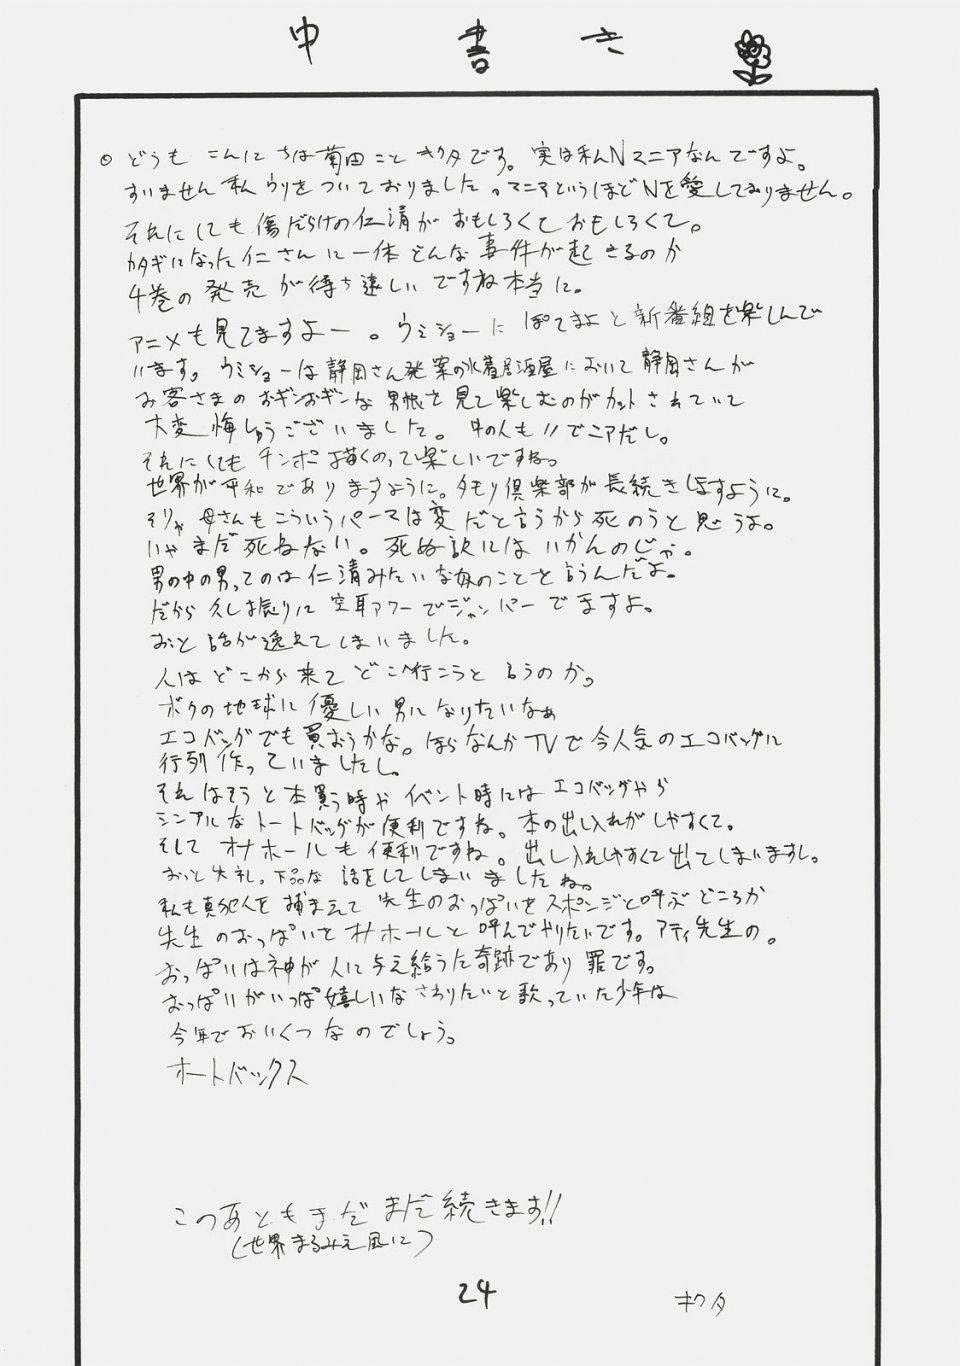 中書き
どうも こんにちは菊田こと キクタです。実は私Nマニアなんですよ。
すいません私 ウソをついておりました。マニアというほどNを愛しておりません。
それにしても傷だらけの仁清がおもしろくておもしろくて。
カタギになった仁さんに一体どんな事件が起きるのか
4巻の発売が待ち遠しいですね本当に。
アニメも見てますよー。ウミショーにぽてまよと新番組を楽しんで
います。ウミショーは静岡さん発案の水着居酒屋において静岡さんが
お客さまのおギンおギンな男根を見て楽しむのがカットされていて
大変悔しゅうございました。中の人も〃でニアだし。
それにしてもチンポ描くのって楽しいですね。
世界が平和でありますように。タモリ倶楽部が長続きしますように。
そりゃ母さんもこういうパースは変だと言うから死のうと思うよ。
いやまだ死ねない。死ぬ訳にはいかんのじゃ。
男の中の男ってのは仁清みたいな奴のことを言うんだよ。
だから久し振りに空耳アワーでジャンパーでますよ。
おっと話が逸れてしまいました。
人はどこから来てどこへ行こうと言うのか。
ボクの地球に優しい男になりたいなぁ
エコバッグでも買おうかな。ほらなんかTVで今人気のエコバッグに
行列作っていましたし。
それはそうと本買う時やイベント時にはエコバッグやら
シンプルなトートバッグが便利ですね。本の出し入れがしやすくて。
そしてオナホールも便利ですね。出し入れしやすくて出てしまいますし。
おっと失礼。下品な話をしてしまいましたね。
私も真犯人を捕まえて先生のおっぱいをスポンジと呼ぶどころか
先生のおっぱいをオナホールと呼んでやりたいです。アティ先生の。
おっぱいは神が人に与え給うた奇跡であり罪です。
おっぱいがいっぱい嬉しいなさわりたいと歌っていた少年は
今年でおいくつなのでしょう。
オートバックス
このあともまだまだ続きます!!
(世界まるみえ風に)
24
キクタ